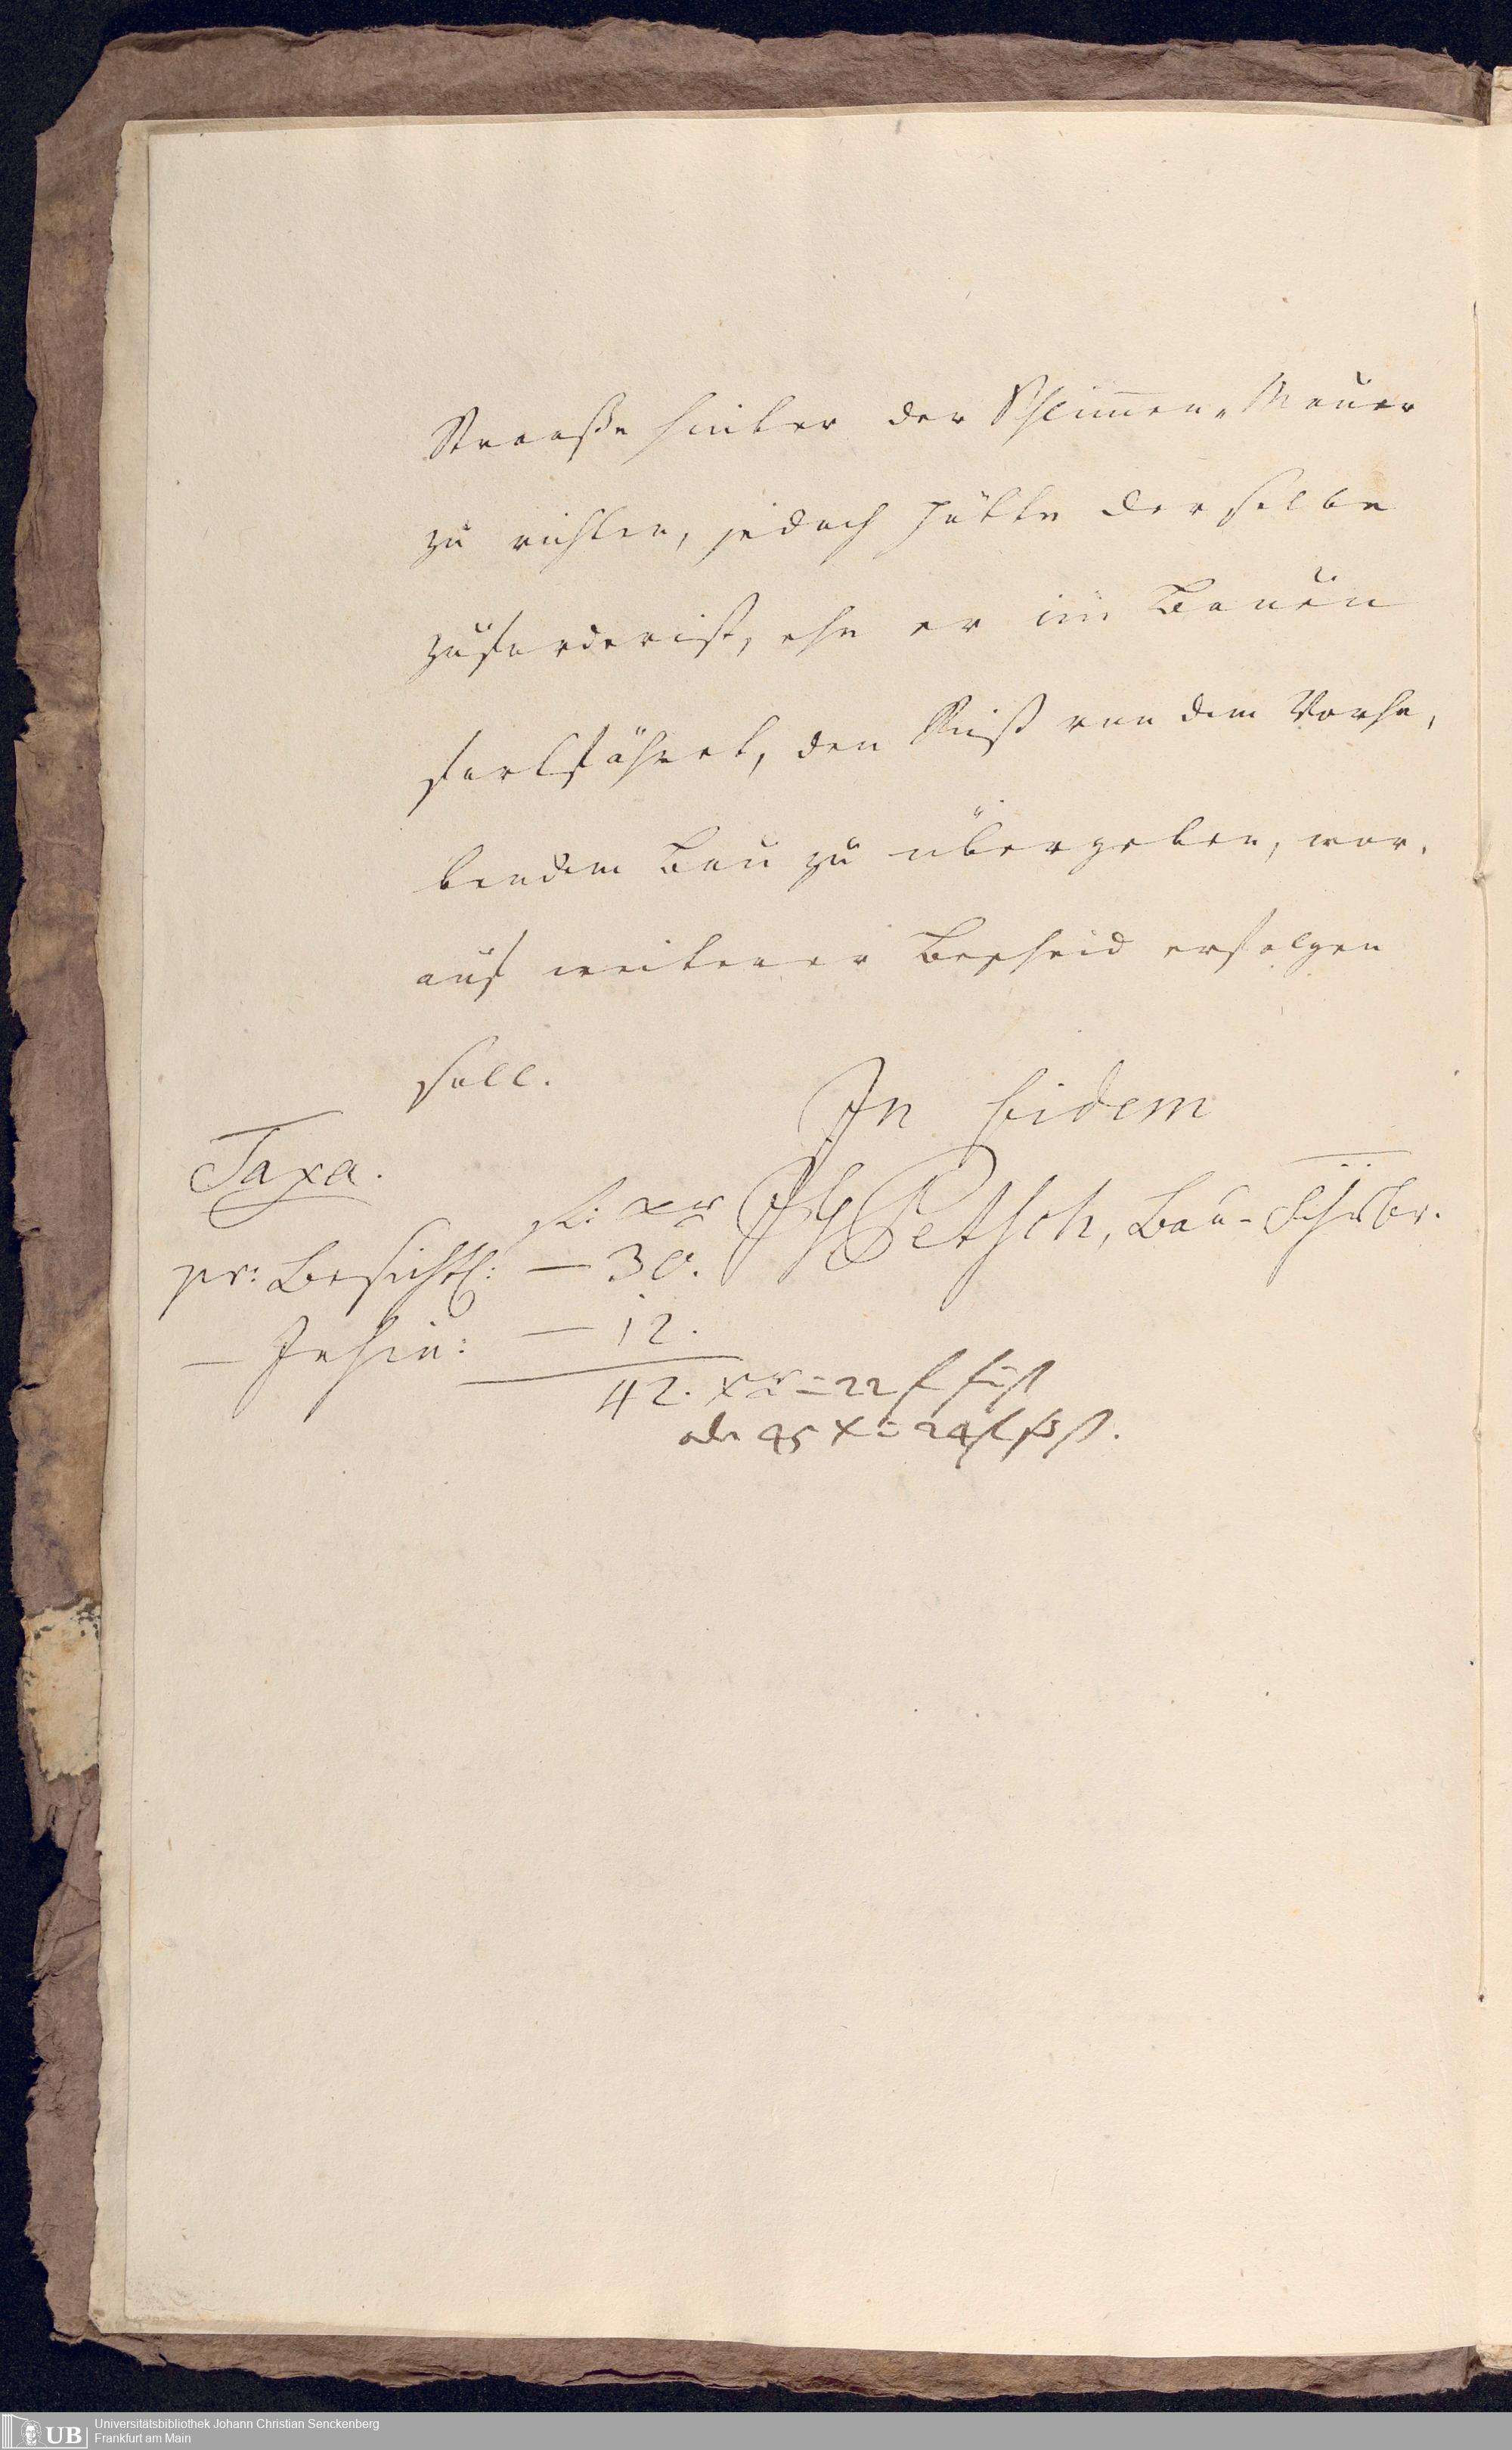 Straaße hinter der Schlimmen-Mauer
zu richten, jedoch hätte derselbe
zuforderist, ehe er im Bauen
fortfähret, den Riß von dem Vorha,
bendem Bau zu übergeben, wor,
auf weiterer Bescheid erfolgen
soll.
In fidem
Taxa.
fl: xr
JHPetsch, Bau-Schrbr.
pr: Besichtl: — 30.
— Jnsin: — 12.
42. xr = 22
oder 45 x = 24
Universitätsbibliothek Johann Christian Senckenberg
UB Frankfurt am Main